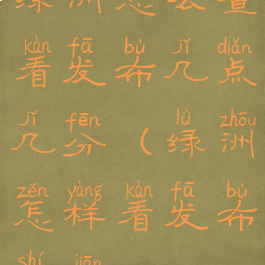 kàn fā bù jǐ diǎn
看发布几点
jǐ fēn lǜ zhōu
几分（绿洲
zěn yàng kàn fā bù
怎样看发布
shí jiān